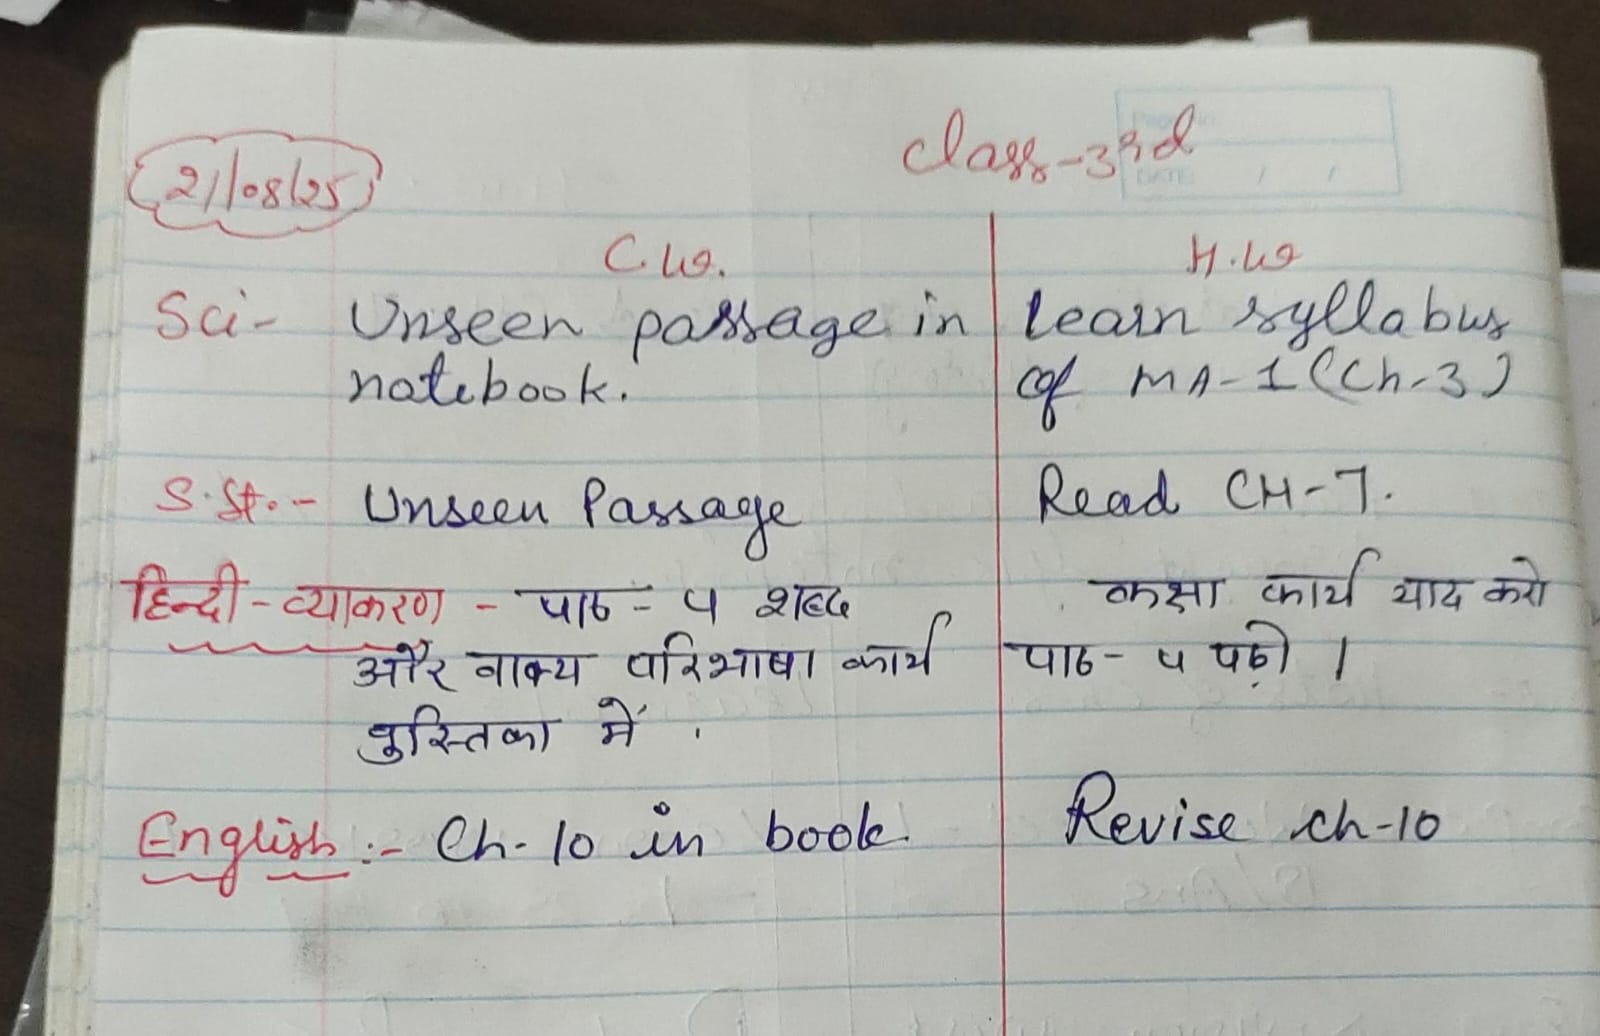 Class-3rd
21/08/25
C.W. H.W
Sci- Unseen passage in learn syllabus
notebook. of MA-1 (Ch-3)
S.St.- Unseen Passage Read CH-7.
हिन्दी-व्याकरण - पाठ- ५ शब्द कक्षा कार्य याद करो
और वाक्य परिभाषा कार्य पाठ- ५ पढ़ो ।
पुस्तिका में .
English:- Ch-10 in book. Revise ch-10